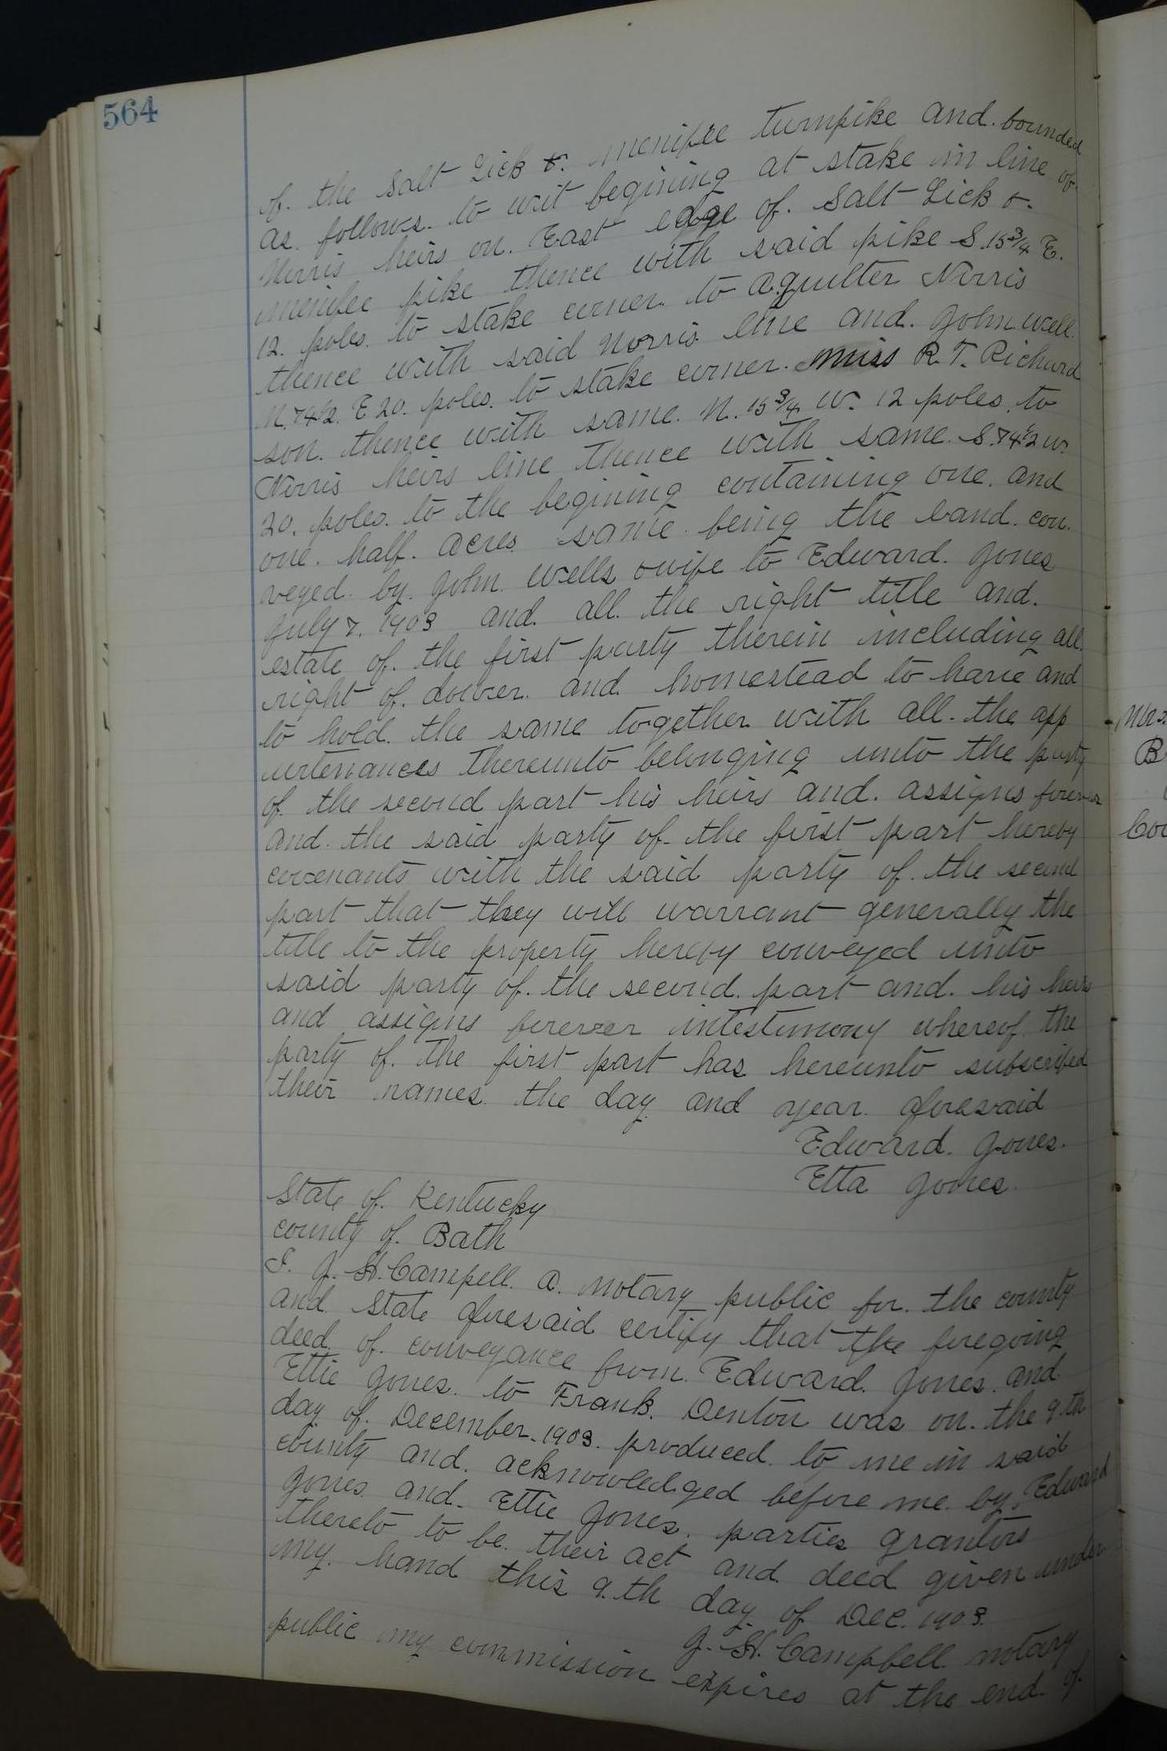 564
of. the Salt Lick &. Menifee turnpike and. bounded
as. follows. to wit begining at stake in line of
Norris heirs on. East edge of. Salt Lick &.
Menifee pike thence with said pike S. 15 3/4 E.
12. poles. to stake corner. to Aquilter Norris
thence with said Norris line and. John well
N. 74 1/2. E 20. poles. to stake corner. Miss R. T. Richard
son. thence with same. N. 15 3/4 W. 12 poles. to
Norris heirs line thence with same. S. 74 1/2 W
20. poles. to the begining containing one. and
one. half. acres same. being the land. con.
veyed. by. John. Wells & wife to Edward. Jones
July 7. 1903 and. all. the right title and.
estate of. the first party therein including all.
right of. dower. and homestead to have and
to hold. the same together with all. the app
urtenances thereunto belonging unto the party
of the second part his heirs and. assigns forever
and. the said party of the first part hereby
covenants with the said party of. the second
part that they will warrant generally the
title to the property hereby conveyed unto
said party of. the second. part and. his heirs
and assigns forever intestimony whereof. the
party of. the first part has hereunto subscribed
their names. the day and year aforesaid
Edward. Jones.
Etta Jones.
State of. Kentucky
county of. Bath
I. J. H. Campell. a. Notary public for. the county
and State aforesaid certify that the foregoing
deed of. conveyance from. Edward. Jones. and
Ettie Jones. to Frank. Denton was on. the 9th
day of. December. 1903. produced to me in said
county and. acknowledged before me by. Edward
Jones. and. Ettie Jones. parties grantors
thereto to be. their act and deed given under
my. hand this 9.th day of Dec. 1903.
J. H. Campbell notary
public my commission expires at the end of
Mrs.
B
Cou